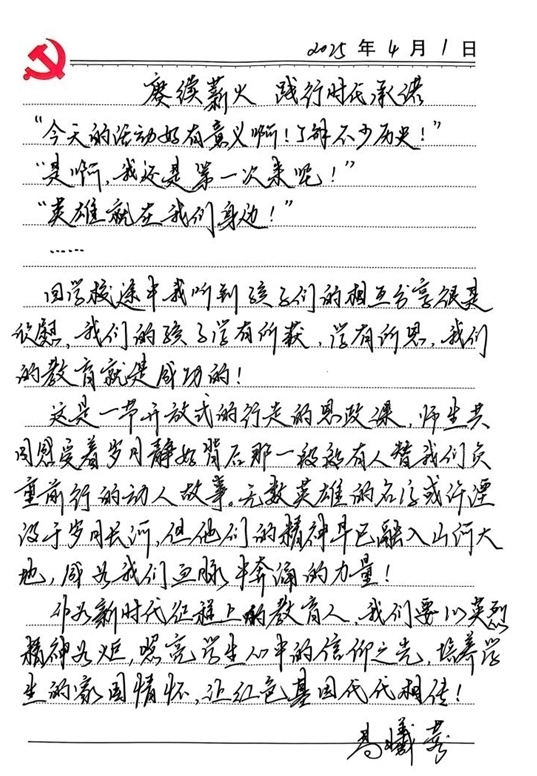 2025年4月1日
赓续薪火 践行时代承诺
“今天的活动好有意义啊!了解不少历史!”
“是啊,我还是第一次来呢!”
“英雄就在我们身边!”
……
回学校途中我听到孩子们的相互分享很是
欣慰,我们的孩子学有所获,学有所思,我们
的教育就是成功的!
这是一节开放式的行走的思政课,师生共
同感受着岁月静好背后那一段段有人替我们负
重前行的动人故事。无数英雄的名字或许湮
没于岁月长河,但他们的精神早已融入山河大
地,成为我们血脉中奔涌的力量!
作为新时代征程上的教育人,我们要以英烈
精神为炬,照亮学生心中的信仰之光,培养学
生的家国情怀,让红色基因代代相传!